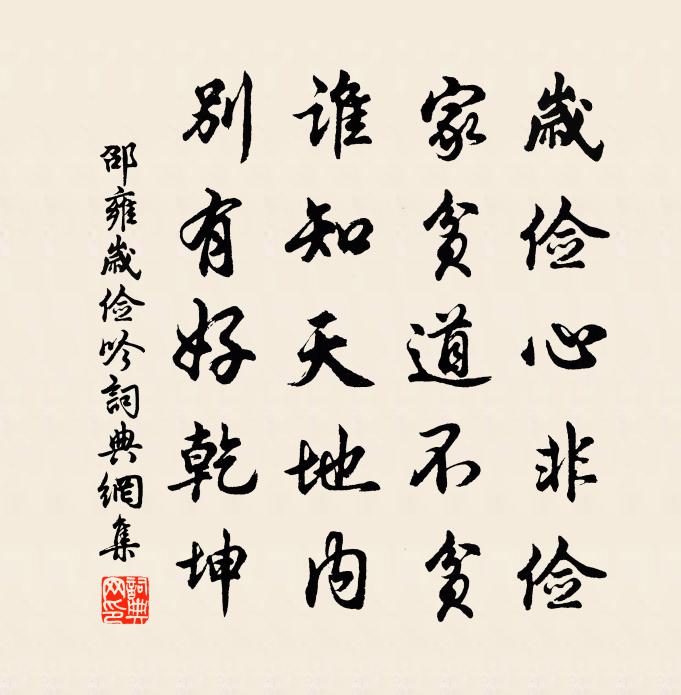 歲儉心非儉
家貧道不貧
誰知天地內
別有好乾坤
邵雍歲儉吟詞典網集
詞典网印